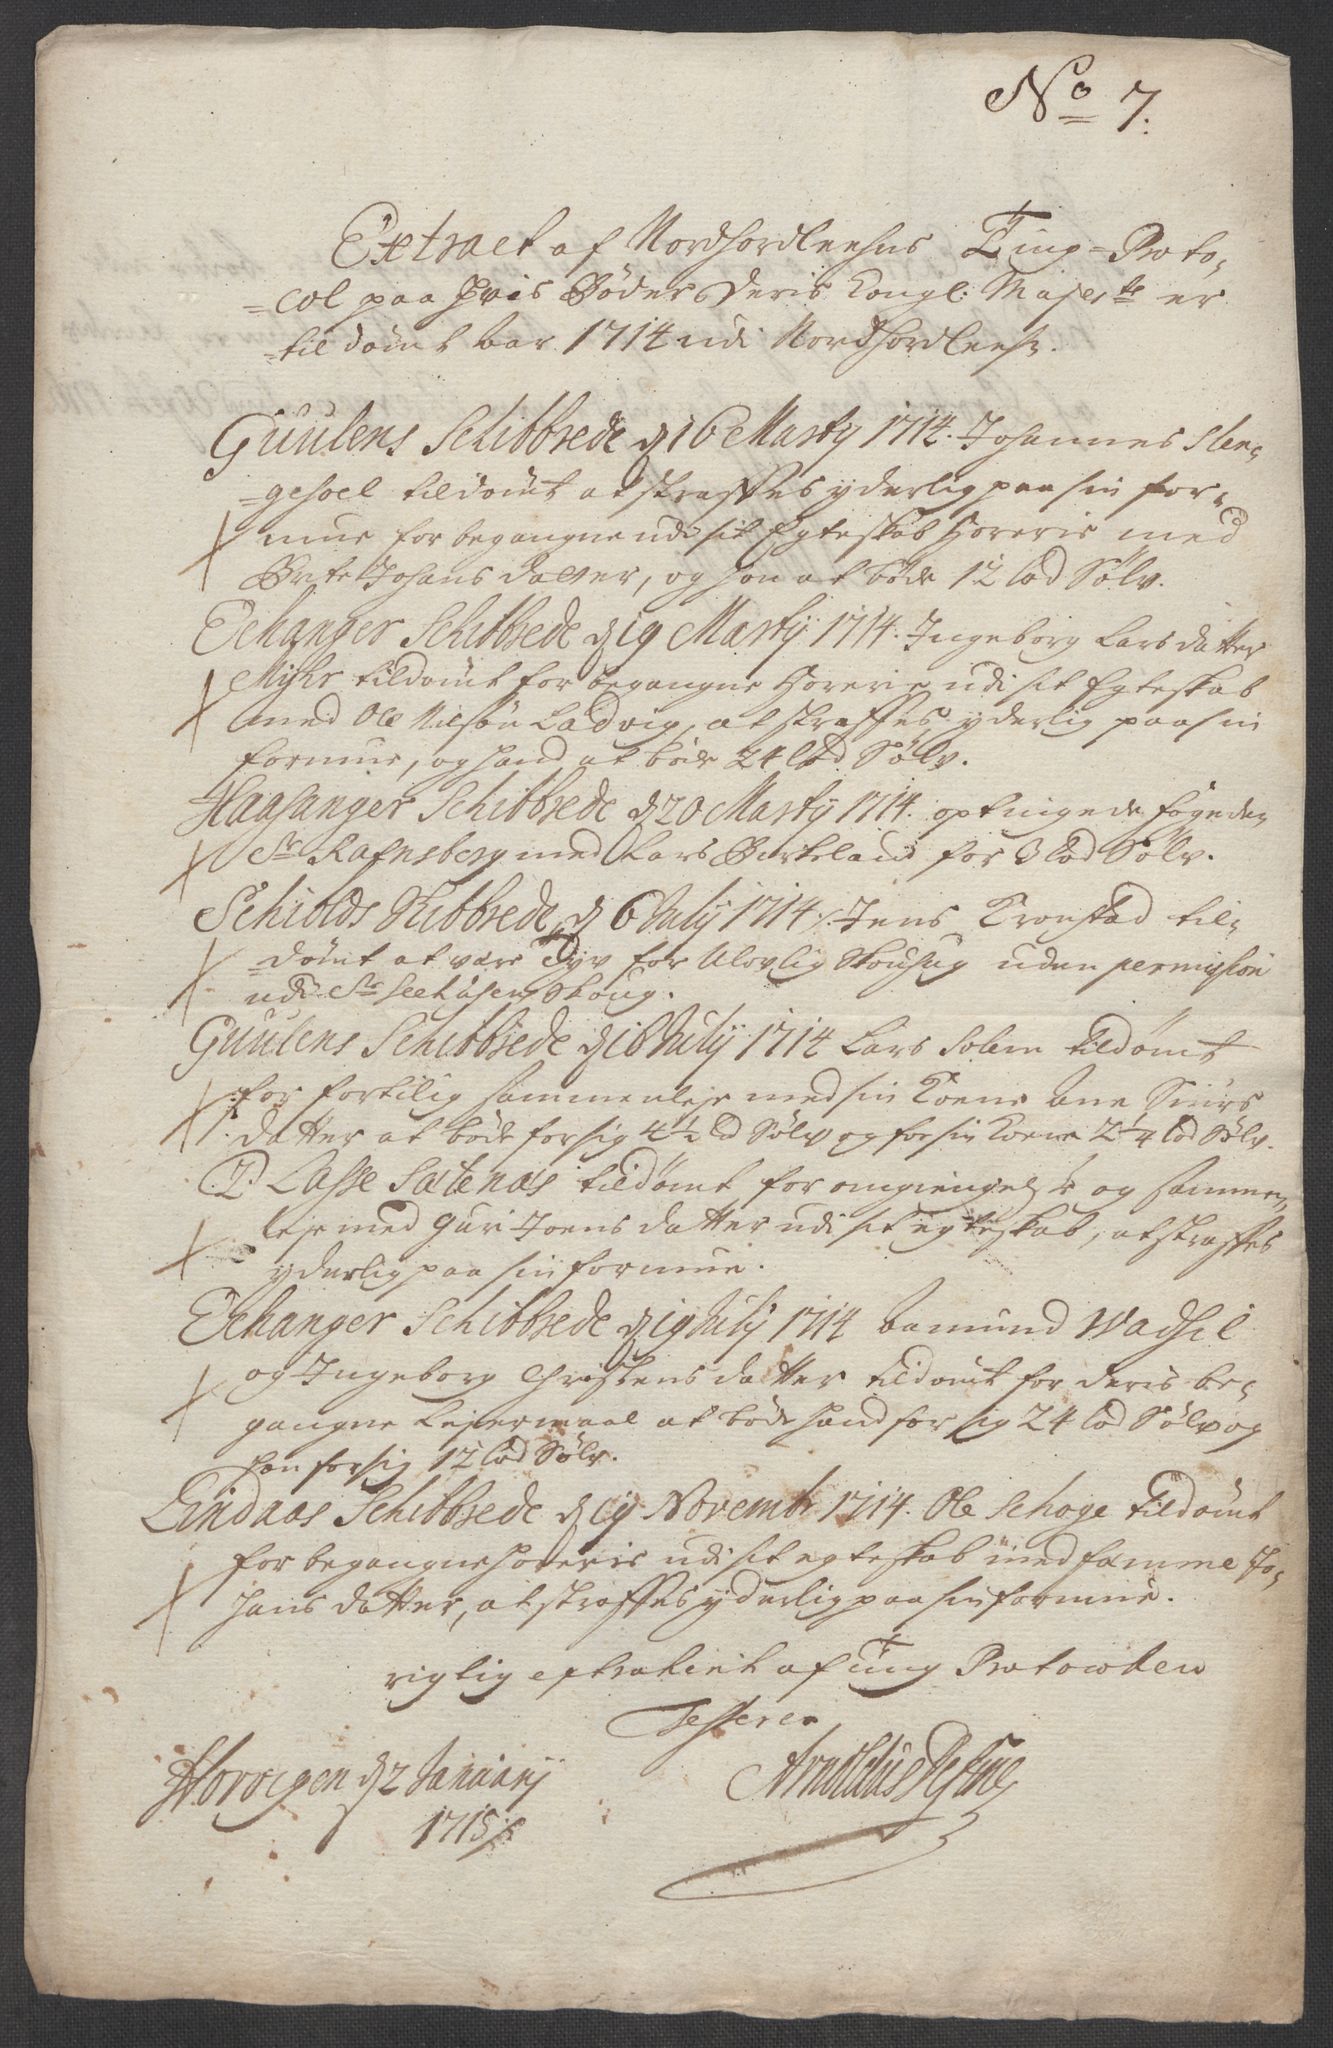 No 7.
Extract af Nordhordlehns Ting-Proto-
-col paa hvis Bøder Deris Kongl: Majestt er
-tildømt aar 1714 udi Nordhordlehn.
Guulens Schibbrede d 16 Marty 1714. Johannes Slen-
-gesoel tildømt at straffes yderlig paa sin for-
mue for begangne udi sit Egteskab Horerie med
Brite Johans datter, og hon at bøde 12 lod Sølv.
Echanger Schibbrede d 19 Marty 1714. Ingeborg Lars datter
Myhr tildømt for begangne Horerie udi sit Egteskab
med Ole Nilsøn Ladvig, at straffes yderlig paa sin
formue, og hand at bøde 24 lod Sølv.
Haasanger Schibbrede d 20 Marty 1714. optingede fogeden
Sr Rafnsberg med Lars Birkeland for 3 lod Sølv.
Schiolds Skibbrede d 6 July 1714. Jens Kronstad til-
-dømt at være Tyv for Ulovlig Skoufug uden permission
udi Sr Seehusens Skoug.
Guulens Schibbrede d 16 July 1714 Lars Solem tildømt
for fortilig sammenleje med sin Kone Ane Siurs
datter at bøde for sig 4½ lod Sølv og for sin Kone 2¼ lod Sølv.
2. Lasse Sætenæs tildømt for omgiengelse og sammen-
leje med Guri Joens datter udi sit egteskab, at straffes
yderlig paa sin formue.
Echanger Schibbrede d 19 July 1714 Aamund Wadsel
og Ingeborg Christens datter tildømt for deris be-
gangne Lejermaal at bøde hand for sig 24 lod Sølv og
hon for sig 12 lod Sølv.
Lindaas Schibbrede d 19 Novembr 1714. Ole Schoge tildømt
for begangne horerie udi sit egteskab med Famme Jo-
hans datter, at straffes yderlig paa sin formue.
rigtig extraherit af Ting Protocollen
Testerer
Horvigen d 2 January
1715